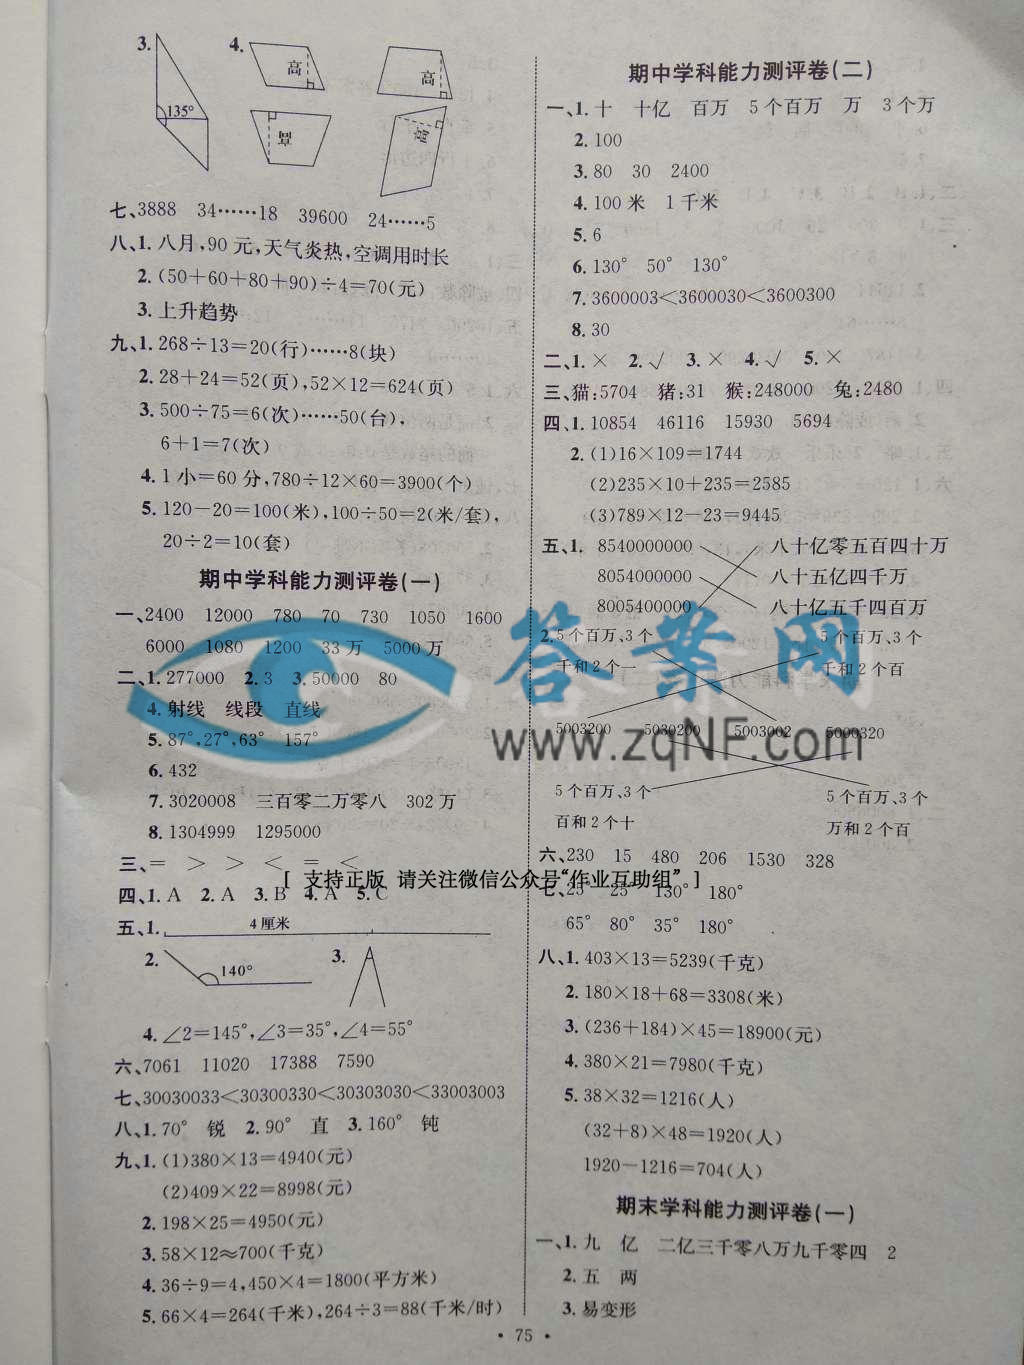 3.
135°
4.
高
高
高
高
七、3888 34……18 39600 24……5
八、1. 八月,90元,天气炎热,空调用时长
2. (50+60+80+90)÷4=70(元)
3. 上升趋势
九、1. 268÷13=20(行)……8(块)
2. 28+24=52(页),52×12=624(页)
3. 500÷75=6(次)……50(台),
6+1=7(次)
4. 1小=60分,780÷12×60=3900(个)
5. 120-20=100(米),100÷50=2(米/套),
20÷2=10(套)
期中学科能力测评卷(一)
一、2400 12000 780 70 730 1050 1600
6000 1080 1200 33万 5000万
二、1. 277000 2. 3 3. 50000 80
4. 射线 线段 直线
5. 87°,27°,63° 157°
6. 432
7. 3020008 三百零二万零八 302万
8. 1304999 1295000
三、= > > < = <
四、1. A 2. A 3. B 4. A 5. C
五、1. 4厘米
2. 140°
3.
4. ∠2=145°,∠3=35°,∠4=55°
六、7061 11020 17388 7590
七、30030033<30300330<30303030<33003003
八、1. 70° 锐 2. 90° 直 3. 160° 钝
九、1. (1)380×13=4940(元)
(2)409×22=8998(元)
2. 198×25=4950(元)
3. 58×12≈700(千克)
4. 36÷9=4,450×4=1800(平方米)
5. 66×4=264(千米),264÷3=88(千米/时)
期中学科能力测评卷(二)
一、1. 十 十亿 百万 5个百万 万 3个万
2. 100
3. 80 30 2400
4. 100米 1千米
5. 6
6. 130° 50° 130°
7. 3600003<3600030<3600300
8. 30
二、1. × 2. √ 3. × 4. √ 5. ×
三、猫:5704 猪:31 猴:248000 兔:2480
四、1. 10854 46116 15930 5694
2. (1)16×109=1744
(2)235×10+235=2585
(3)789×12-23=9445
五、1. 8540000000 八十亿零五百四十万
8054000000 八十五亿四千万
8005400000 八十亿五千四百万
2. 5个百万、3个 5个百万、3个
千和2个一 千和2个百
5003200 5030200 5003002 5000320
5个百万、3个 5个百万、3个
百和2个十 万和2个百
六、230 15 480 206 1530 328
七、25° 25° 130° 180°
65° 80° 35° 180°
八、1. 403×13=5239(千克)
2. 180×18+68=3308(米)
3. (236+184)×45=18900(元)
4. 380×21=7980(千克)
5. 38×32=1216(人)
(32+8)×48=1920(人)
1920-1216=704(人)
期末学科能力测评卷(一)
一、1. 九 亿 二亿三千零八万九千零四 2
2. 五 两
3. 易变形
• 75 •
答案网
www.zqNF.com
[ 支持正版 请关注微信公众号“作业互助组” ]